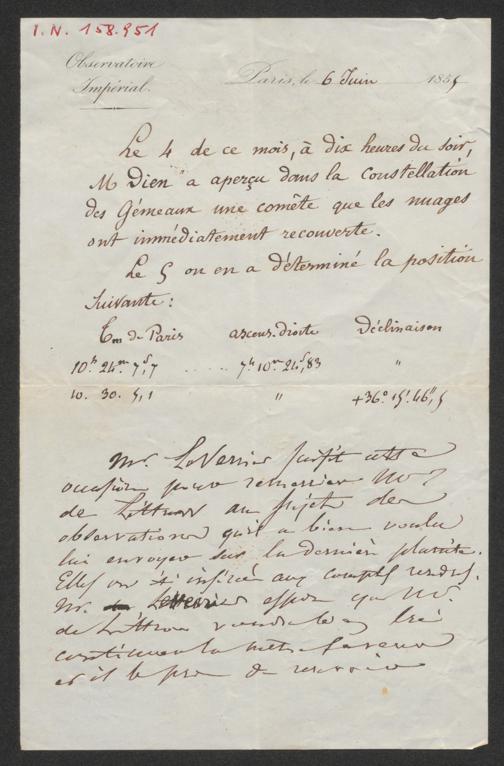 I.N. 158.951
Observatoire
Impérial.
Paris, le 6 Juin 1855
Le 4 de ce mois, à dix heures du soir,
M Dien a aperçu dans la constellation
des Gémeaux une comête que les nuages
ont immédiatement recouverte.
Le 5 on en a déterminé la position
suivante :
Tm de Paris ascens. droite Déclinaison
10h 24m 7s,7 . . . . . 7h 10m 24s,83 "
10. 30. 5,1 " +36° 15' 46",5
Mr. LeVerrier saisit cette
occasion pour remercier Mr
de Littrow au sujet des
observations qu'il a bien voulu
lui envoyer sur la dernière planète.
Elles ont été insérées aux comptes rendus.
Mr. LeVerrier espère que Mr.
de Littrow voudra bien lui
continuer la même faveur
et il le prie de recevoir